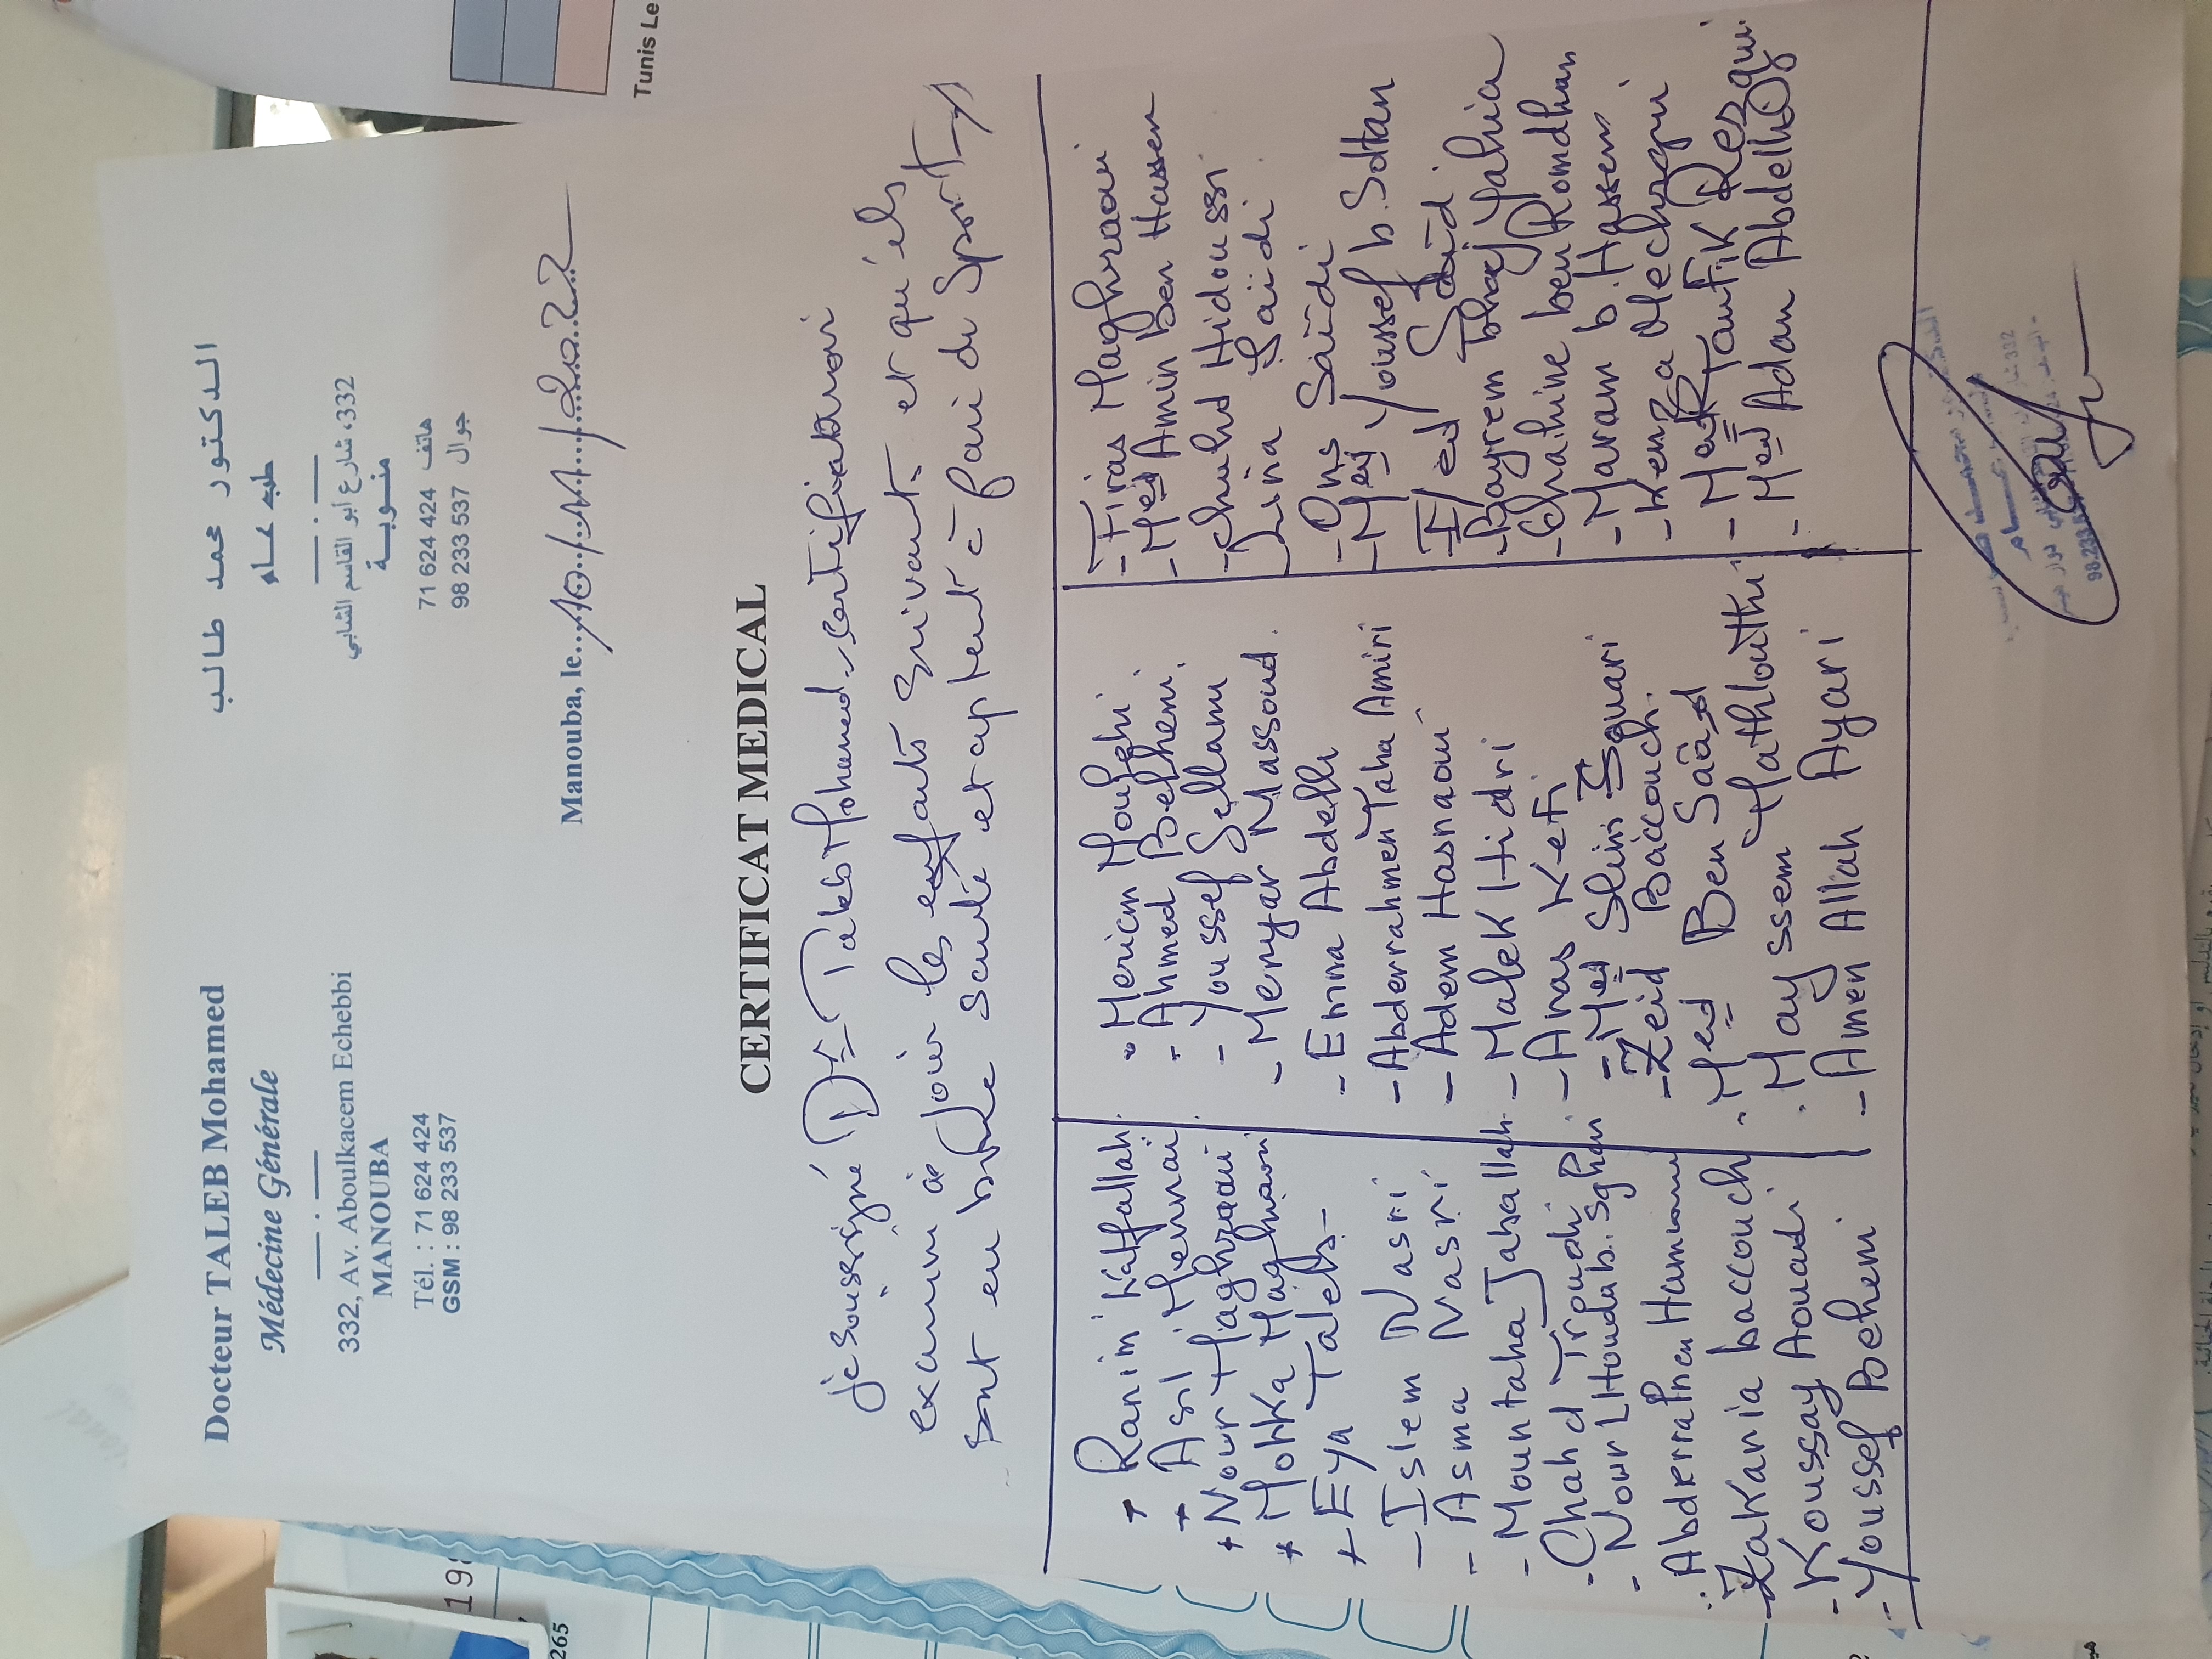 Docteur TALEB Mohamed
Médecine Générale
332, Av. Aboulkacem Echebbi
MANOUBA
Tél. : 71 624 424
GSM : 98 233 537
الدكتور محمد طالب
طب عام
332، شارع أبو القاسم الشابي
منوبة
هاتف 71 624 424
جوال 98 233 537
Manouba, le 10/11/2022
CERTIFICAT MEDICAL
je soussigné Dr Taleb Mohamed certifie avoir
examiné ce jour les enfants suivants et qu'ils
sont en bonne santé et aptent à faire du Sport
+ Ranim Katfallah
+ Asil Hennai
+ Nour Maghraoui
+ Mohka Maghraoui
+ Eya Taleb
- Islem Nasri
- Asma Nasri
- Mountaha Jaballah
- Chahd Troudi
- Nour L Houda b. Sghair
- Abderrahmen Hammami
- Zakaria baccouch
- Koussay Aouadi
- Youssef Belhemi
- Meriam Moufghi
- Ahmed Belhemi
- Youssef Sellami
- Meryar Massoud
- Emna Abdelli
- Abderrahmen Taha Amiri
- Adem Hasnaoui
- Malek Hidri
- Anas Kefi
- Med Slim Sguari
- Zeid Baccouch
- Med Ben Saad
- Mayssem Mathlouthi
- Amen Allah Ayari
- Firas Maghraoui
- Med Amin Ben Hassen
- Chuhd Hidoussi
- Lina Saidi
- Ons Saidi
- Med Youssef b. Soltan
- Iyed Saidi
- Bayrem bhaj Yahia
- Chahine ben Romdhan
- Maram b. Hassen
- Kenza Mechregui
- Med Taufik Rezgui
- Med Adam Abdelli
98.233.537
Tunis Le
265